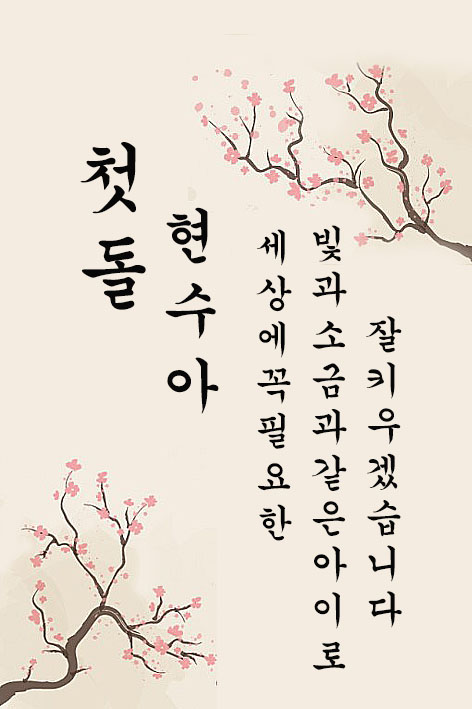 첫돌
현수아
세상에꼭필요한
빛과소금과같은아이로
잘키우겠습니다